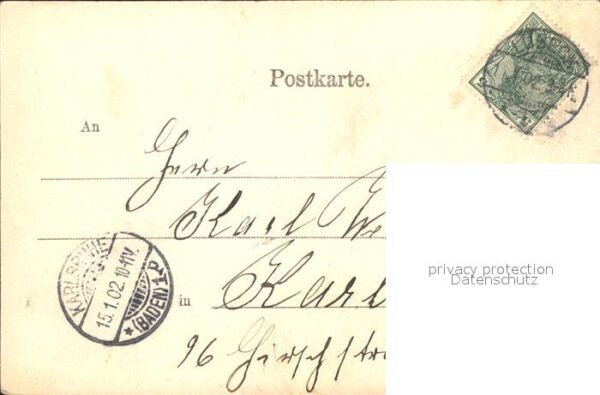 Postkarte.
An
Herrn
Karl
in Karl
96 Hirschstr
KARLSRUHE
15.1.02.10-11V.
*(BADEN)1.P
privacy protection
Datenschutz